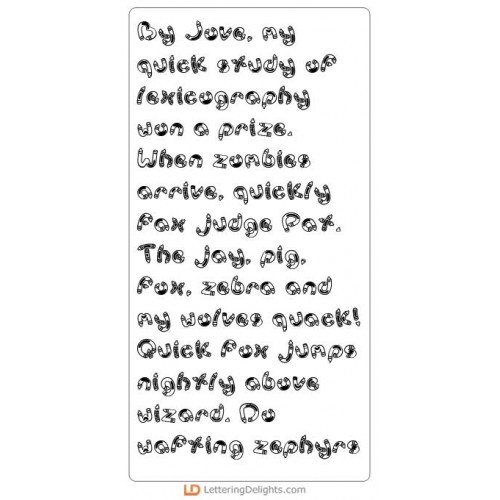 By Jove, my
quick study of
lexicography
won a prize.
When zombies
arrive, quickly
fax judge Pat.
The jay, pig,
fox, zebra and
my wolves quack!
Quick fox jumps
nightly above
wizard. Do
wafting zephyrs
LD LetteringDelights.com